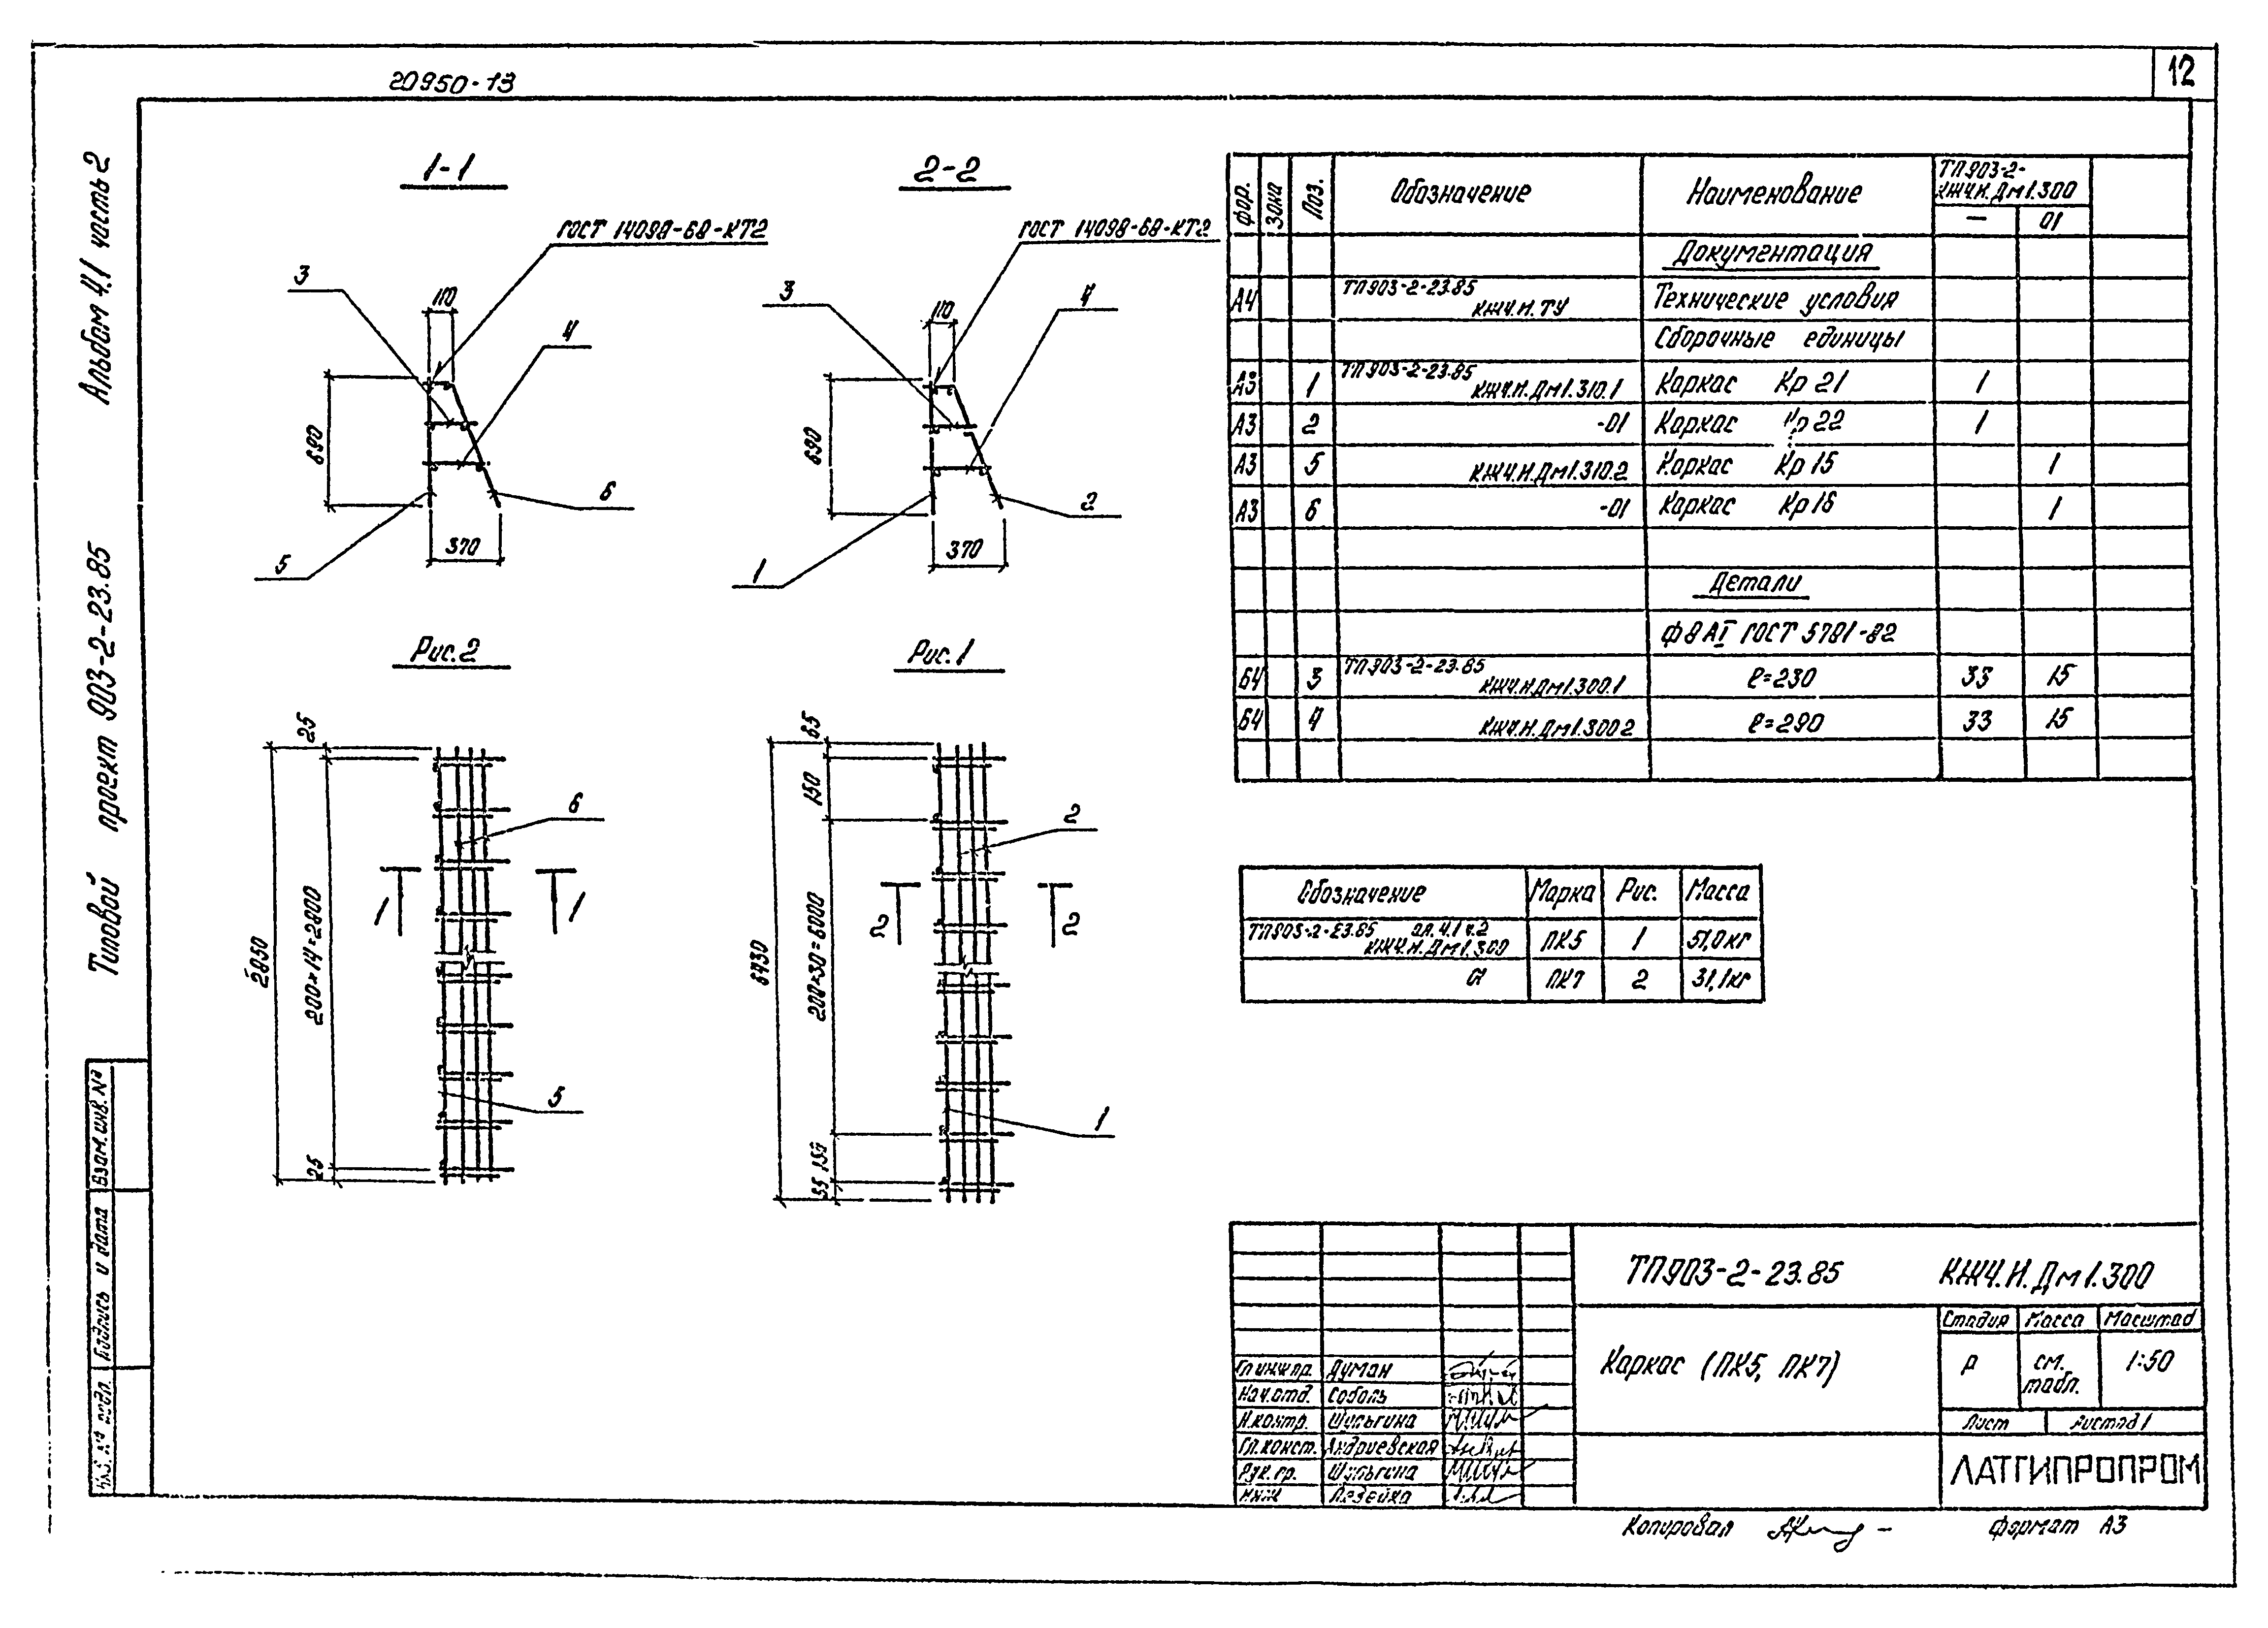 20950-13
12
Альбом 4.1 часть 2
Типовой проект 903-2-23.85
Взам. инв. №
Подпись и дата
1-1
ГОСТ 14098-68-КТ2
3
110
4
690
6
5
370
2-2
ГОСТ 14098-68-КТ2
3
110
4
690
2
1
370
Рис. 2
25
6
1
1
2850
200×14=2800
5
25
Рис. 1
65
150
2
2
2
6430
200×30=6000
1
150
65
Фор. Зона Поз. Обозначение Наименование ТП903-2- КЖ4.И.Дм1.300
— 01
Документация
А4 ТП903-2-23.85 КЖ4.И.ТУ Технические условия
Сборочные единицы
А3 1 ТП903-2-23.85 КЖ4.И.Дм1.310.1 Каркас Кр 21 1
А3 2 -01 Каркас Кр 22 1
А3 5 КЖ4.И.Дм1.310.2 Каркас Кр 15 1
А3 6 -01 Каркас Кр 16 1
Детали
Ф8 АI ГОСТ 5781-82
Б4 3 ТП903-2-23.85 КЖ4.И.Дм1.300.1 ℓ=230 33 15
Б4 4 КЖ4.И.Дм1.300.2 ℓ=290 33 15
Обозначение Марка Рис. Масса
ТП903-2-23.85 ал. 4.1 ч.2 КЖ4.И.Дм1.300 ПК5 1 51,0 кг
01 ПК7 2 31,1 кг
ТП903-2-23.85 КЖ4.И.Дм1.300
Каркас (ПК5, ПК7)
Стадия Масса Масштаб
Р см. табл. 1:50
Лист Листов 1
ЛАТГИПРОПРОМ
Гл.инж.пр. Думан
Нач.отд. Соболь
Н.контр. Шульгина
Гл.конст. Андриевская
Рук.гр. Шульгина
Инж
Копировал Формат А3